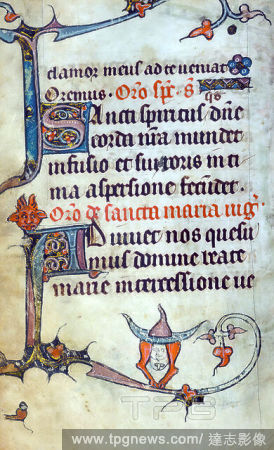 et clamor meus ad te veniat
Oremus. Oro spc. s
Sancti spiritus dne
corda nra mundet
infusio et sui roris inti
ma aspersione fecundet.
Oro de sancta maria virg.
Adiuvet nos quesu
mus domine beate
marie intercessione ve
TPG
www.tpgnews.com/ 達志影像